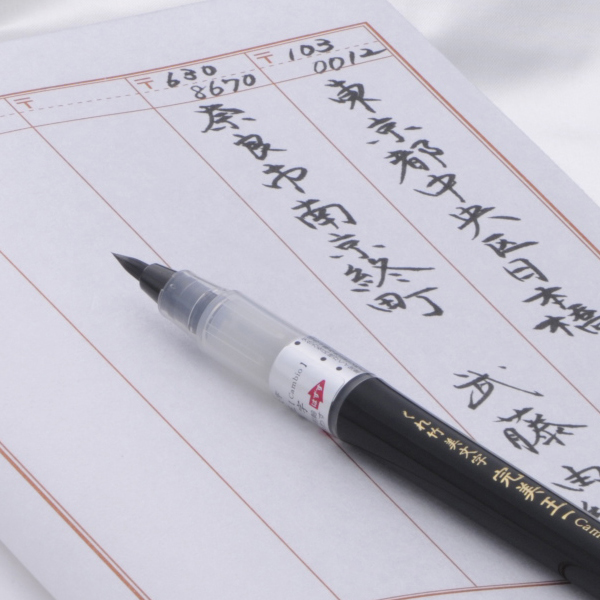 〒103
0012
東京都中央区日本橋
武藤
〒630
8670
奈良市南京終町
〒
くれ竹美文字 完美王